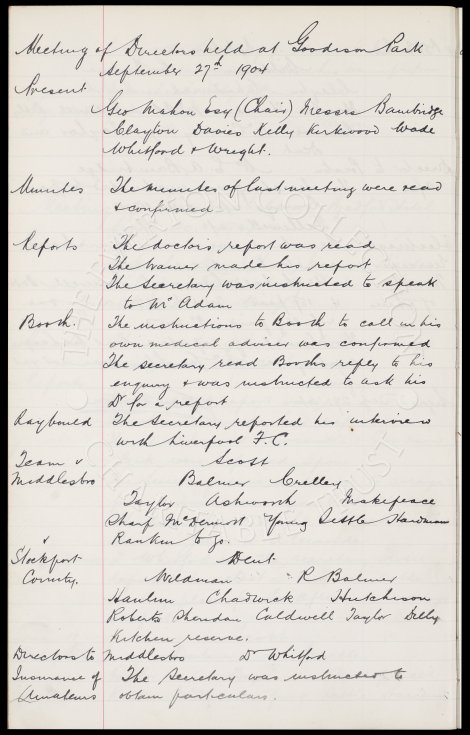 Meeting of Directors held at Goodison Park
September 27th 1904
Present
Geo Mahon Esq (Chair) Messrs Bainbridge
Clayton Davies Kelly Kirkwood Wade
Whitford & Wright.
Minutes The minutes of last meeting were read
& confirmed
Reports The doctors report was read
The trainer made his report
The Secretary was instructed to speak
to Mr Adam
Booth. The instructions to Booth to call in his
own medical adviser was confirmed
The secretary read Booths reply to his
enquiry & was instructed to ask his
Dr for a report
Raybould The Secretary reported his interview
with Liverpool F.C.
Team v Scott
Middlesbro Balmer Crelley
Taylor Ashworth Makepeace
Sharp McDermot Young Settle Hardman
Rankin to go.
v Dent
Stockport
County. Wildman R Balmer
Haulin Chadwick Hutchison
Roberts Sheridan Caldwell Taylor
Kitchen reserve.
Directors to Middlesbro Dr Whitford
Insurance of The Secretary was instructed to
Amateurs obtain particulars.
THE EVERTON COLLECTION
CHARITABLE TRUST